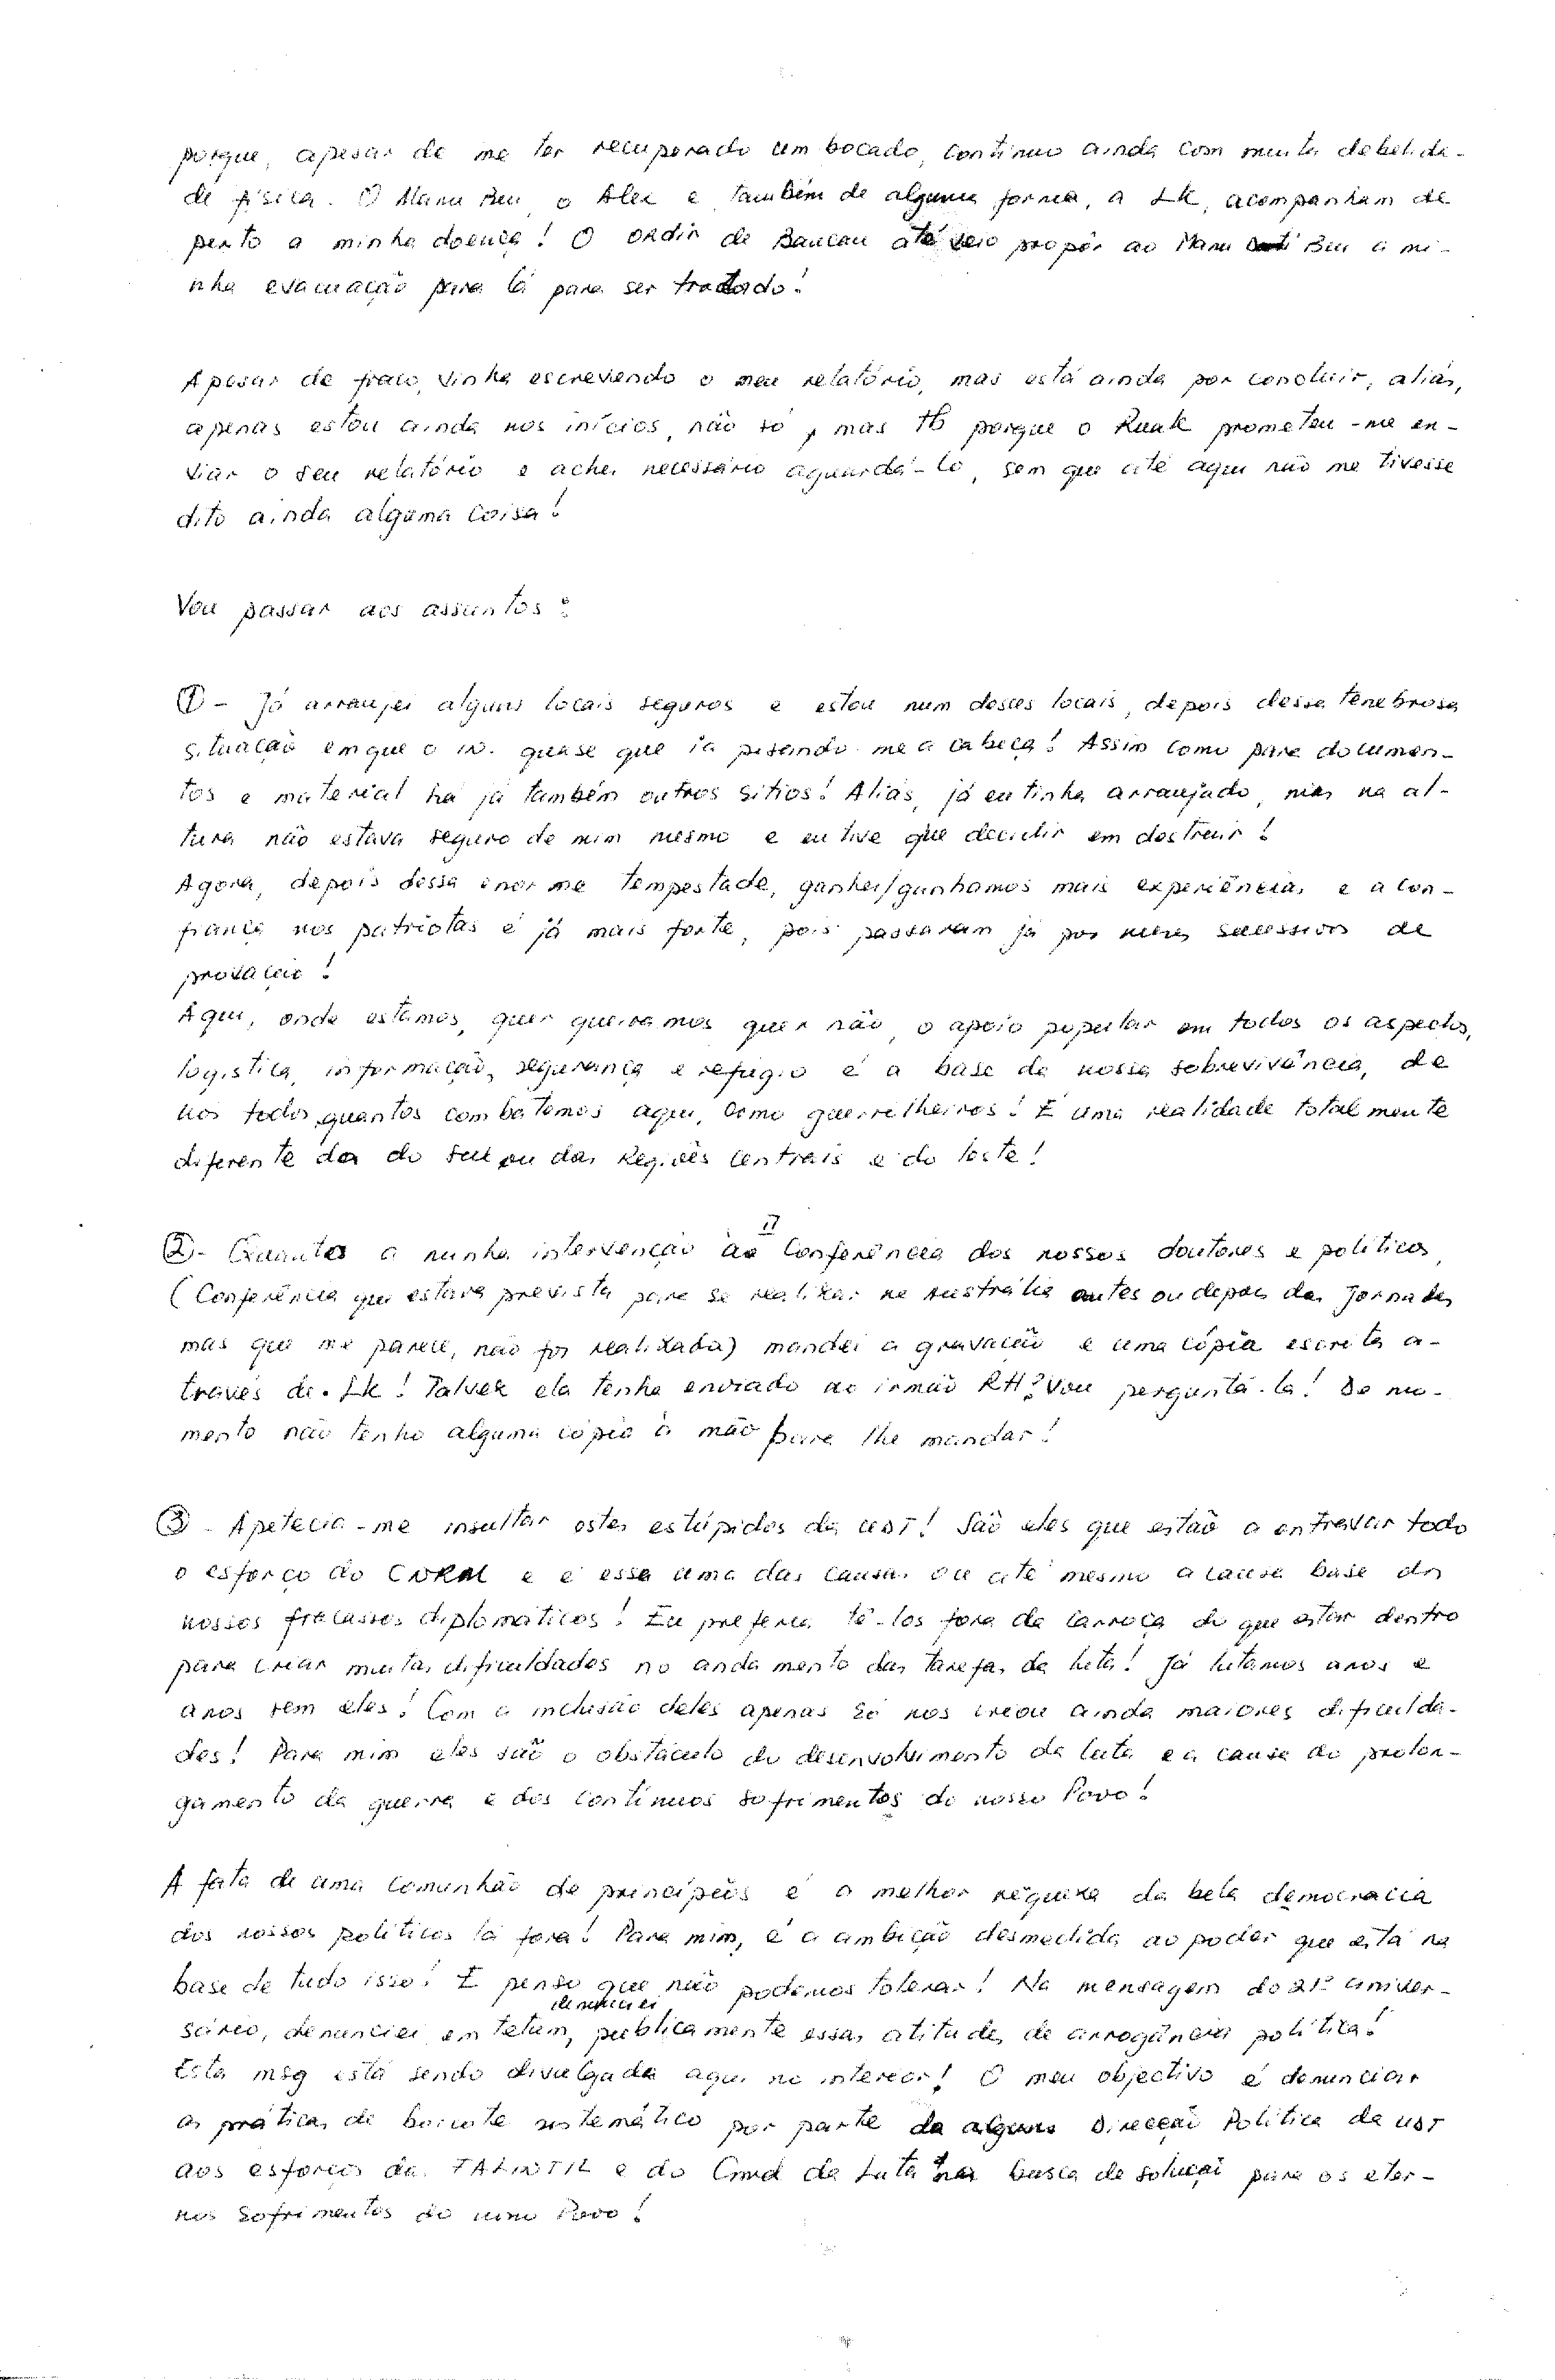 porque, apesar de me ter recuperado um bocado, continuo ainda com muita debelida-
de física. O Manu Beu, o Alex e também de alguma forma, a LK, acompanham de
perto a minha doença! O ORDIR de Baucau até veio propôr ao Manu Beu a mi-
nha evacuação para lá para ser tratado!
Apesar de fraco, vinha escrevendo o meu relatório, mas está ainda por concluir, aliás,
apenas estou ainda nos inícios, não só, mas tb porque o Ruak prometeu-me en-
viar o seu relatório e achei necessário aguardá-lo, sem que até aqui não me tivesse
dito ainda alguma coisa!
Vou passar aos assuntos:
① - Já arranjei alguns locais seguros e estou num desses locais, depois dessa tenebrosa
situação em que o in. quase que ia pisando-me a cabeça! Assim como para documen-
tos e material há já também outros sítios! Aliás, já eu tinha arranjado, mas na al-
tura não estava seguro de mim mesmo e eu tive que decidir em destruir!
Agora, depois dessa enorme tempestade, ganhei/ganhamos mais experiências e a con-
fiança nos patriotas é já mais forte, pois passaram já por sucessivos de
provação!
Aqui, onde estamos, quer queiramos quer não, o apoio popular em todos os aspectos,
logística, informação, segurança e refúgio é a base da nossa sobrevivência, de
nós todos quantos combatemos aqui, como guerrilheiros! É uma realidade totalmente
diferente da do sul ou das Regiões Centrais e do leste!
② - Quanto a minha intervenção à II Conferência dos nossos doutores e políticos,
(Conferência que estava prevista para se realizar na Austrália antes ou depois das Jornadas
mas que me parece, não foi realizada) mandei a gravação e uma cópia escrita a-
través da. LK! Talvez ela tenha enviado ao irmão RH? Vou perguntá-la! De mo-
mento não tenho alguma cópia à mão para lhe mandar!
③ - Apetecia-me insultar estes estúpidos da UDT! São eles que estão a entravar todo
o esforço do CNRM e é essa uma das causas ou até mesmo a causa base dos
nossos fracassos diplomáticos! Eu preferia tê-los fora da carroça do que estar dentro
para criar muitas dificuldades no andamento das tarefas da luta! Já lutamos anos e
anos sem eles! Com a inclusão deles apenas só nos criou ainda maiores dificulda-
des! Para mim eles são o obstáculo do desenvolvimento da luta e a causa do prolon-
gamento da guerra e dos contínuos sofrimentos do nosso Povo!
A falta de uma comunhão de princípios é a melhor riqueza da bela democracia
dos nossos políticos lá fora! Para mim, é a ambição desmedida ao poder que está na
base de tudo isso! E penso que não podemos tolerar! Na mensagem do 21º aniver-
denunciei
sário, denunciei em tetum, publicamente essas atitudes de arrogância política!
Esta msg está sendo divulgada aqui no interior! O meu objectivo é denunciar
as práticas de boicote sistemático por parte da alguns Direcção Política da UDT
aos esforços das FALINTIL e do Cmd da Luta na busca de solução para os eter-
nos sofrimentos do Povo!